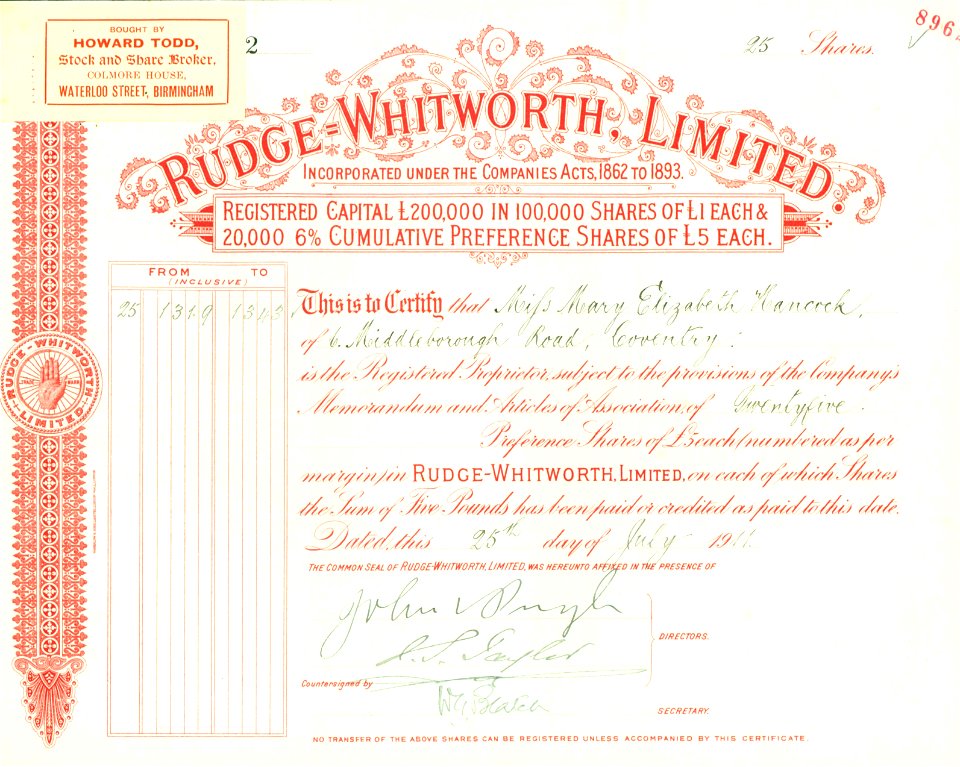 BOUGHT BY
HOWARD TODD,
Stock and Share Broker,
COLMORE HOUSE,
WATERLOO STREET, BIRMINGHAM
2
25 Shares.
896
RUDGE=WHITWORTH, LIMITED.
INCORPORATED UNDER THE COMPANIES ACTS, 1862 TO 1893.
REGISTERED CAPITAL £200,000 IN 100,000 SHARES OF £1 EACH &
20,000 6% CUMULATIVE PREFERENCE SHARES OF £5 EACH.
FROM TO
(INCLUSIVE)
25 1319 1343
This is to Certify that Miss Mary Elizabeth Hancock,
of 6. Middleborough Road, Coventry.
is the Registered Proprietor, subject to the provisions of the Company's
Memorandum and Articles of Association, of Twentyfive.
Preference Shares of £5 each (numbered as per
margin) in RUDGE-WHITWORTH, LIMITED, on each of which Shares
the Sum of Five Pounds has been paid or credited as paid to this date.
Dated, this 25th day of July 1911.
THE COMMON SEAL OF RUDGE-WHITWORTH, LIMITED, WAS HEREUNTO AFFIXED IN THE PRESENCE OF
John V Pugh
DIRECTORS.
Taylor
Countersigned by
SECRETARY.
NO TRANSFER OF THE ABOVE SHARES CAN BE REGISTERED UNLESS ACCOMPANIED BY THIS CERTIFICATE.
RUDGE-WHITWORTH
TRADE MARK
LIMITED